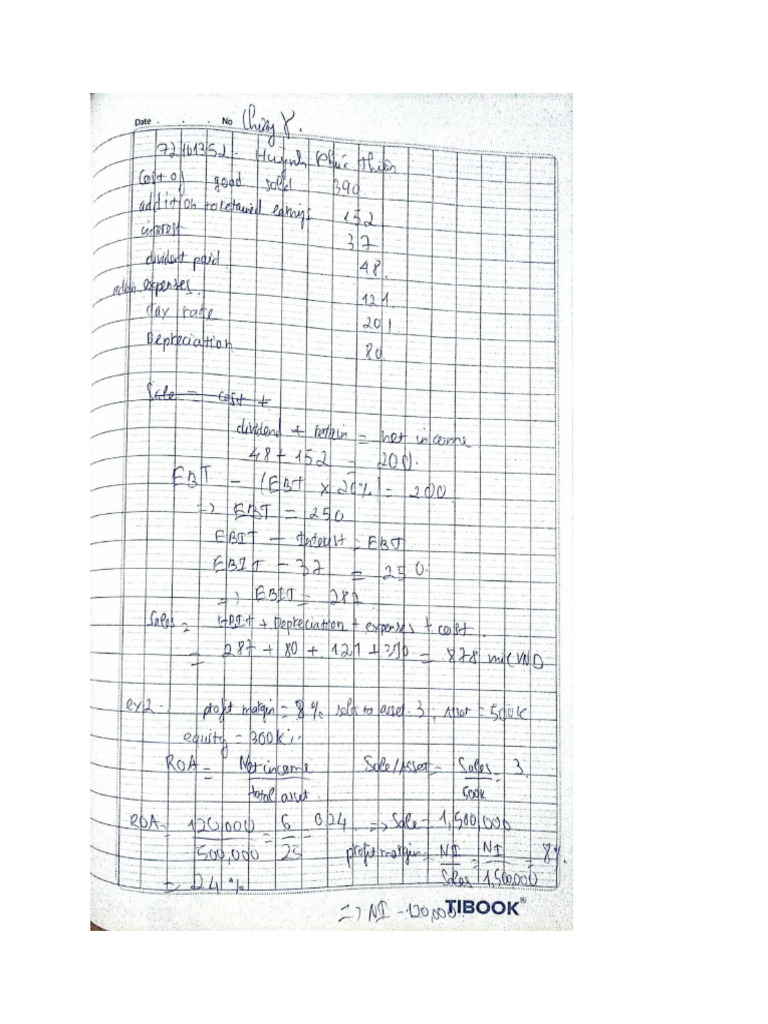 Date . . . No Chương V.
72161352 - Huỳnh Phúc Thiên
Cost of good sold 390
addition to retained earnings 152
interest 37
divident paid 48.
expenses. 121
tax rate 20%
Depreciation 80
Sale = cost +
dividend + retain = net income
48 + 152 = 200.
EBT - (EBT x 20%) = 200
=> EBT = 250
EBIT - Interest = EBT
EBIT - 37 = 250.
=> EBIT = 287
Sales = EBIT + Depreciation + expenses + cost.
= 287 + 80 + 121 + 390 = 878 mil VND
ex2 - profit margin = 8% sales to asset. 3, Asset = 500K
equity = 300K
ROA = Net income / total asset. Sale/Asset = Sales / 500k = 3.
ROA = 120,000 / 500,000 = 6 / 25 = 0.24 => Sale = 1,500,000
= 24% profit margin = NI / Sales = NI / 1,500,000 = 8%.
=> NI - 120,000
TIBOOK®